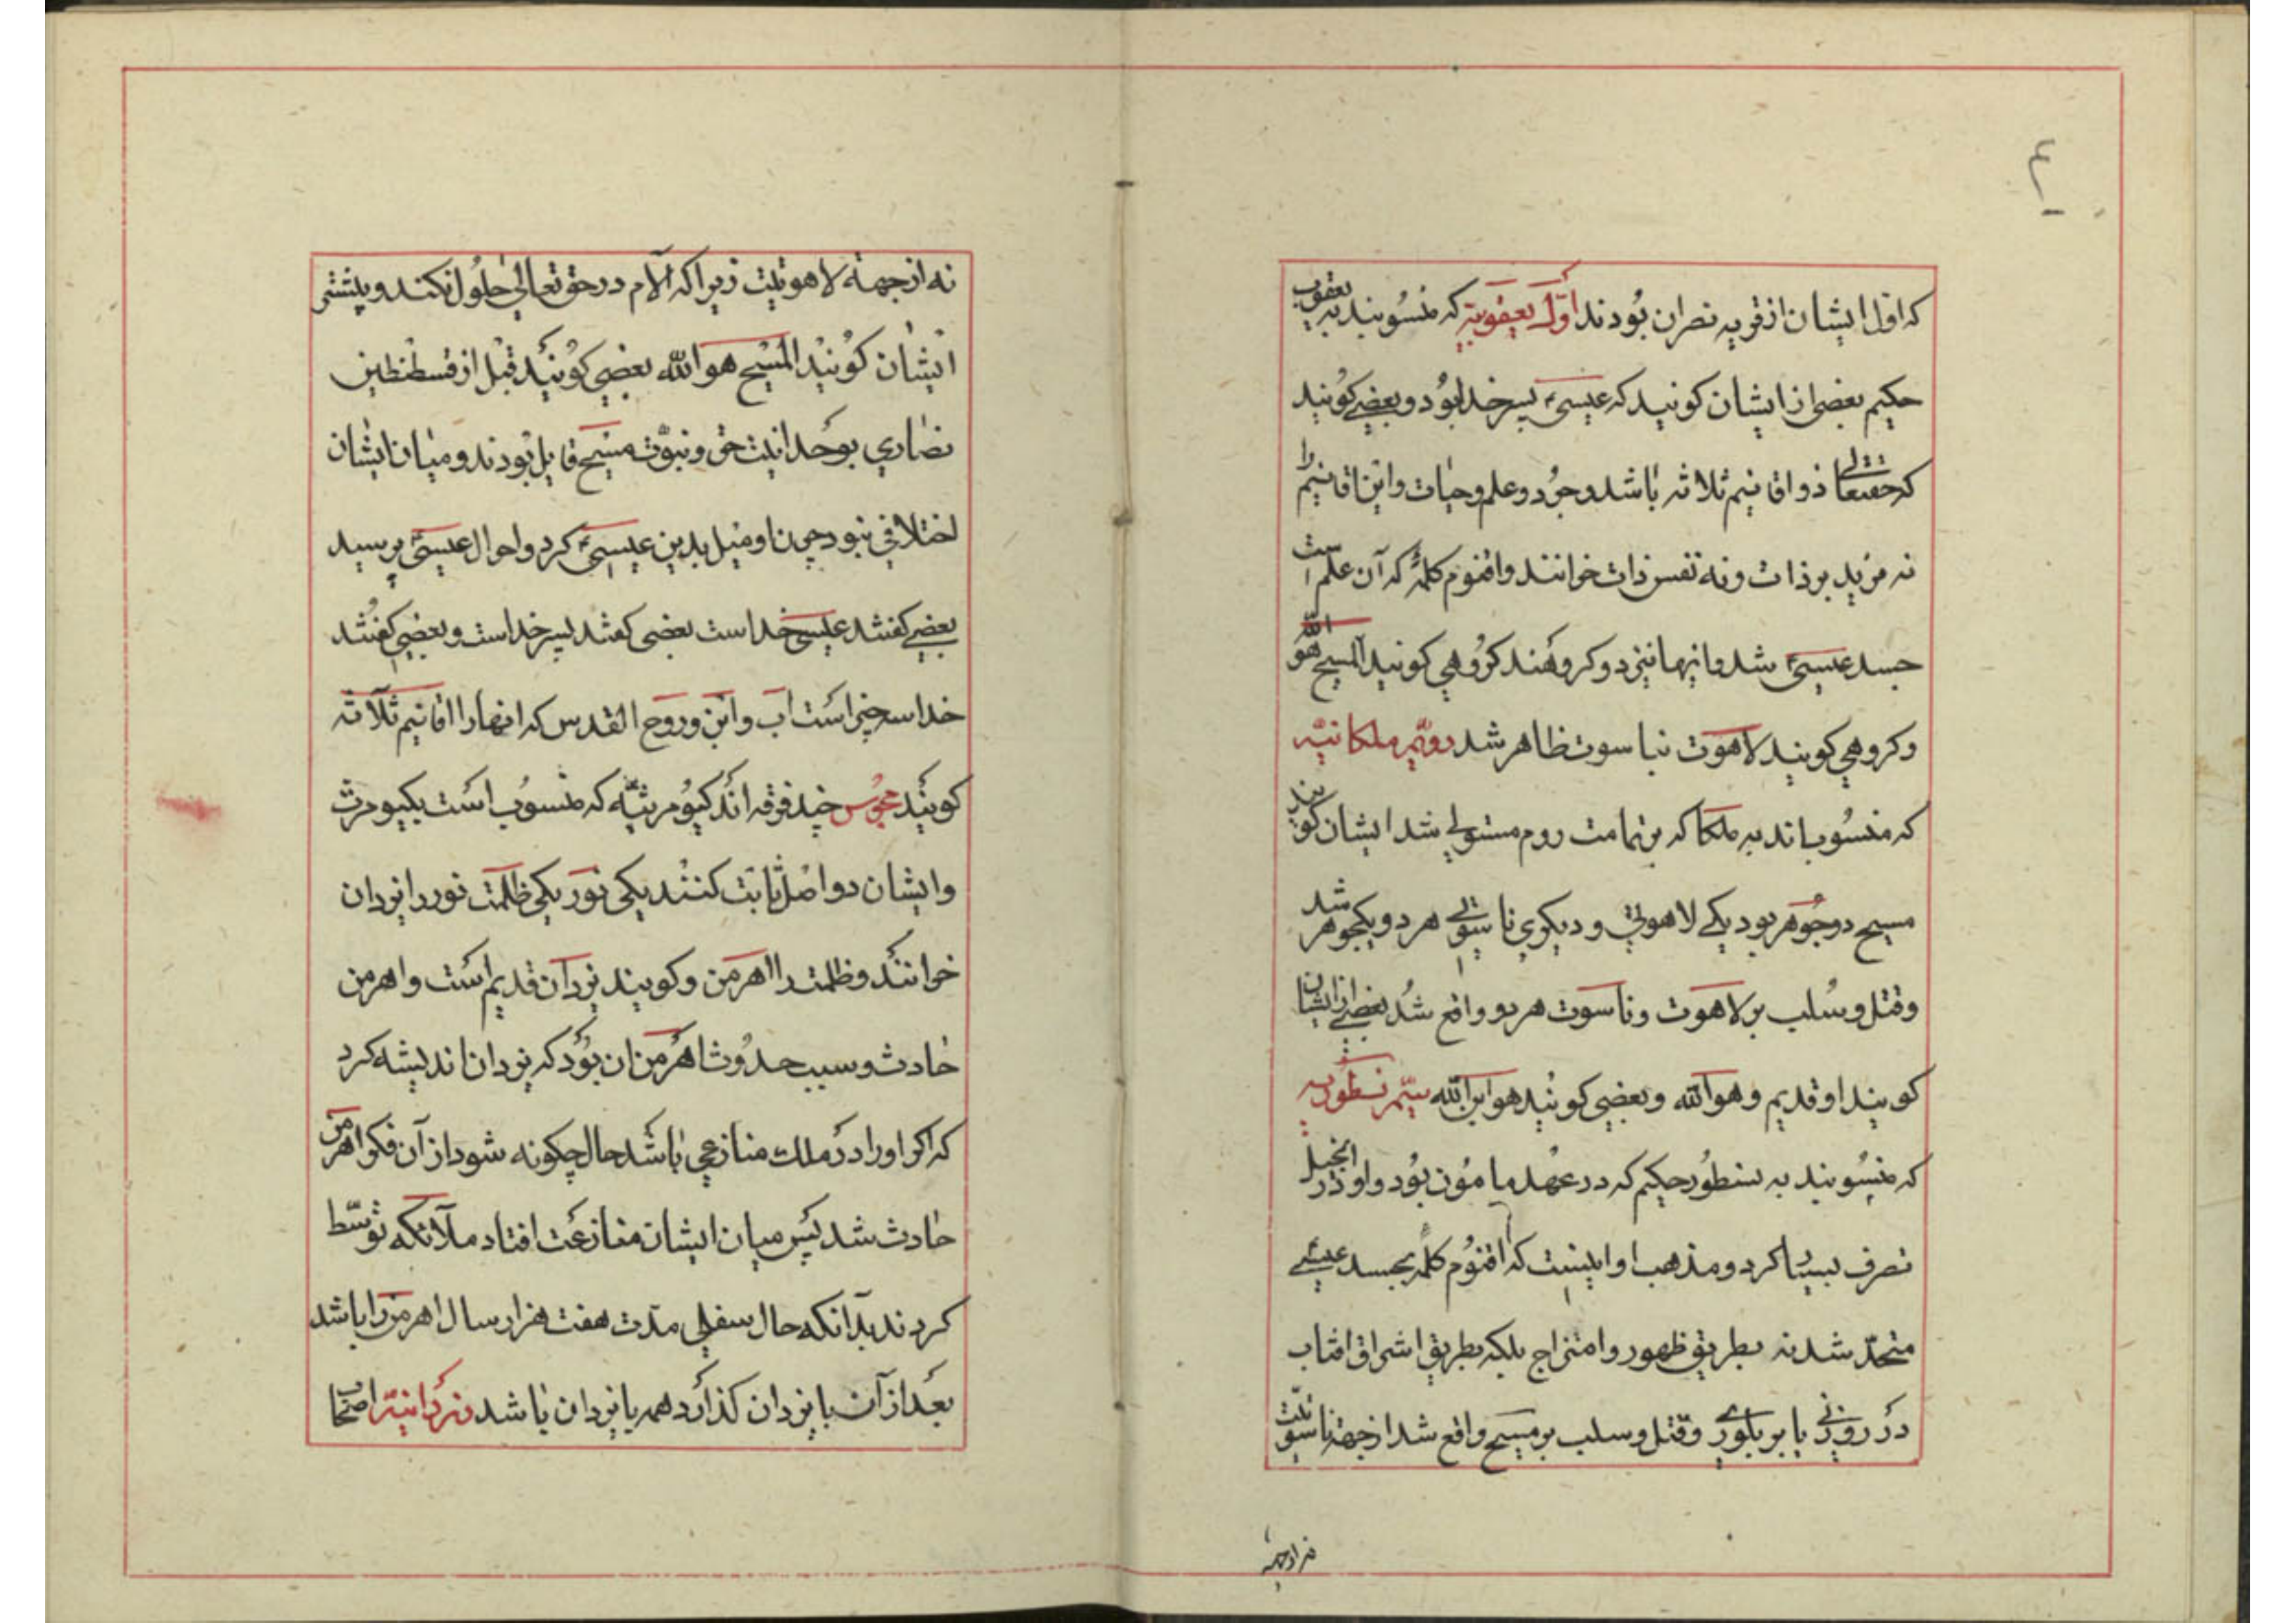 ۴
که اول ایشان از قریه نصران بودند اول یعقوبیه که منسوبند به یعقوب
حکیم بعضی از ایشان کویند که عیسیٰ پسر خدا بود و بعضی کویند
که حقتعالی ذو اقانیم ثلاثه باشد وجود و علم و حیات و این اقانیم را
نه مزید بر ذات و نه نفس ذات خوانند و اقنوم کلمه که آن علم است
جسد عیسیٰ شد و اینها نیز دو کروهند کروهی کویند المسیح هو الله
و کروهی کویند لاهوت بناسوت ظاهر شد دویم ملکانیه
که منسوب اند به ملکا که بر تمامت روم مستولی شد ایشان کویند
مسیح دو جوهر بود یکی لاهوتی و دیکری ناسوتی هر دو یکجوهر شد
و قتل و سلب بر لاهوت و ناسوت هر دو واقع شد بعضی از ایشان
کویند او قدیم و هو الله و بعضی کویند هو ابن الله سیم نسطوریه
که منسوبند به نسطور حکیم که در عهد مامون بود و او در انجیل
تصرف بسیار کرد و مذهب او اینست که اقنوم کلمه بجسد عیسی
متحد شد نه بطریق ظهور و امتزاج بلکه بطریق اشراق افتاب
در روزنی یا بر بلوری و قتل و سلب بر مسیح واقع شد از جهة ناسوتیت
نه از جهة
نه از جهة لاهوتیت زیرا که آلام در حق تعالی حلول نکند و بیشتی
ایشان کویند المسیح هو الله بعضی کویند قبل از قسطنطین
نصاری بوحدانیت حق و نبوت مسیح قایل بودند و میان ایشان
اختلافی نبود چون او میل بدین عیسیٰ کرد و احوال عیسیٰ پرسید
بعضی کفتند عیسی خداست بعضی کفتند پسر خداست و بعضی کفتند
خدا سه چیز است اب و ابن و روح القدس که انها را اقانیم ثلاثه
کویند مجوس چند فرقه اند کیومرثیه که منسوب است بکیومرث
و ایشان دو اصل ثابت کنند یکی نور یکی ظلمت نور را یزدان
خوانند و ظلمت را اهرمن و کویند یزدان قدیم است و اهرمن
حادث و سبب حدوث اهرمن ان بود که یزدان اندیشه کرد
که اکر او را در ملک منازعی باشد حال چکونه شود از آن فکر اهرمن
حادث شد پس میان ایشان منازعت افتاد ملائکه توسط
کردند بدانکه حال سفلی مدت هفت هزار سال اهرمن را باشد
بعد از آن با یزدان کذارد همه با یزدان باشد اصحاب